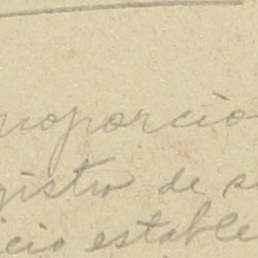 roporcio
gistro de s
icio estable